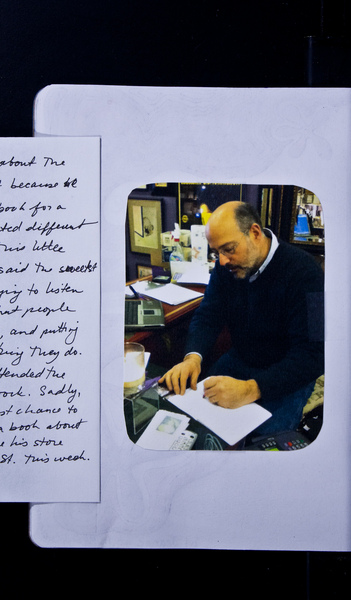 about the
because he
book for a
ted different
This little
said the sweetest
ying to listen
hat people
, and putting
thing they do.
ttended the
ock. Sadly,
st chance to
a book about
e his store
St. This week.